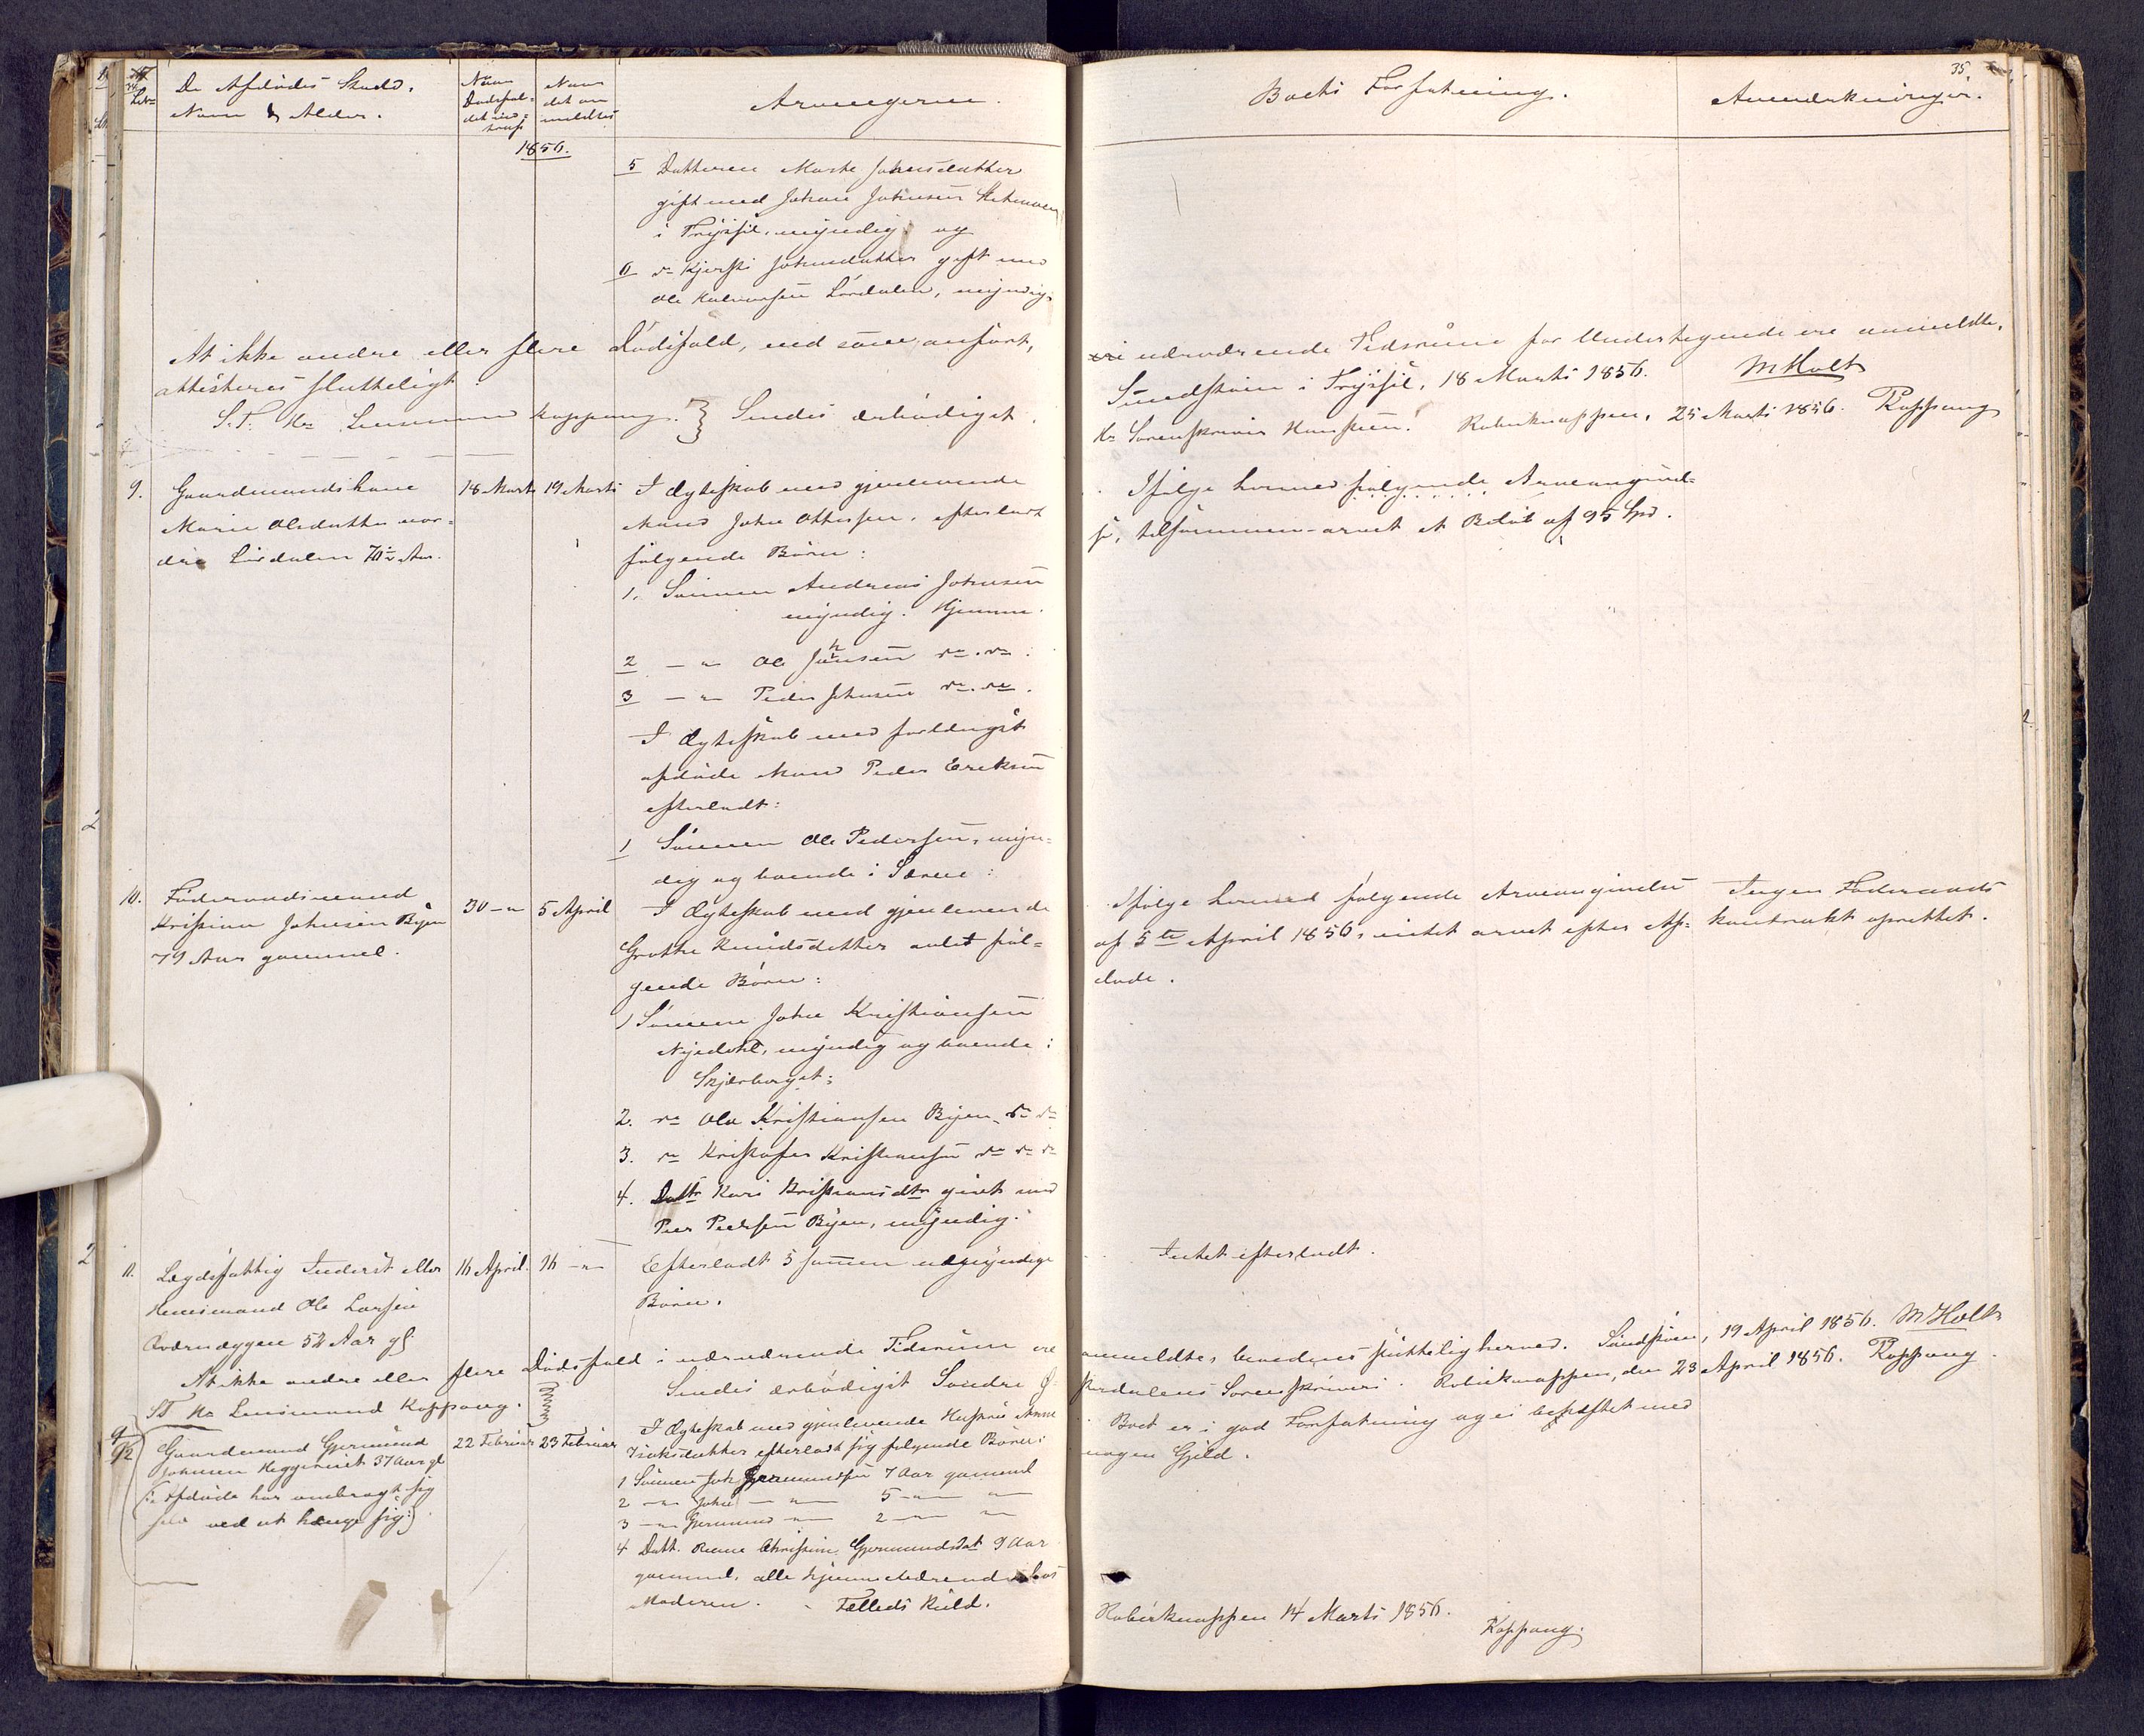 De Afdødes Stand,
Navn & Alder.
Naar
Dødsfal-
det ind-
traf
Naar
det an
meldtes
Arvingerne.
Boets Forfatning.
Anmærkninger.
35
1856.
5 Datteren Marte Johnsdatter
gift med Johan Johnsen
i Trysil, myndig og
6 do Kjersti Johnsdatter gift med
Ole Halvorsen Lørdalen, myndig.
At ikke andre eller flere Dødsfald, end som anført, ere nærværende Tidsrum for Undertegnede ere anmeldte,
attesteres slutteligt. Sundstuen i Trysil, 18 Marts 1856. M Holt
S.T. Hr Lensmand Koppang. Sendes ærbødigst Hr Sorenskriver Hansteen. 25 Marts 1856. Koppang
9.
Gaardmandskone
Marie Olsdatter nor-
dre Lørdalen 70 Aar.
18 Marts
19 Marts
I Ægteskab med gjenlevende
Mand John Ottersen, efterladt
følgende Børn:
1. Sønnen Andreas Johnsen
myndig. Hjemme.
2 — " Ole Johnsen do. do.
3 — " Peder Johnsen do. do.
I Ægteskab med forlængst
afdøde Mand Peder Eriksen
efterladt:
1 Sønnen Ole Pedersen, myn-
dig og boende i Særne:
Ifølge hermed følgende Arveangivel-
se, tilsammen arvet et Beløb af 95 Spd.
10.
Føderaadsmand
Kristian Johnsen Byen
79 Aar gammel.
30 — "
5 April
I Ægteskab med gjenlevende
Grethe Knudsdatter avlet føl-
gende Børn:
1) Sønnen John Kristiansen
Nysedt, myndig og boende i
Skjærberget;
2. do Ola Kristiansen Byen, do do
3. do Kristofer Kristiansen do do do
4. Dattr Kari Kristiansdtr givt med
Peer Pedersen Byen, myndig.
Ifølge hermed følgende Arveangivelse
af 5te April 1856, intet arvet efter Af-
døde.
Ingen Føderaads
kontrakt oprettet.
11.
Lægdsfattig Inderst eller
Huusmand Ole Larsen
52 Aar gl
16 April.
16 — "
Efterladt 5 sammen umyndige
Børn.
Intet efterladt.
At ikke andre eller flere Dødsfald i nærværende Tidsrum ere anmeldte, bevidnes slutteligt herved. Sundstuen, 19 April 1856. M Holt
ST Hr Lensmand Koppang. Sendes ærbødigst Søndre Østerdalens Sorenskriveri. den 23 April 1856. Koppang.
9/92
Gaardmand Gjermund
Johnsen Heggeriset 37 Aar gl
(: Afdøde har ombragt sig
selv ved at hænge sig:)
22 Februar
23 Februar
I Ægteskab med gjenlevende Hustrue Anne
Isaksdatter efterladt sig følgende Børn:
1 Sønnen Joh: Gjermundsen 7 Aar gammel
2 — " John — " — 5 — " — "
3 — " Gjermund — " — 2 — " — "
4 Datt. Christine Gjermundsdat 9 Aar
gammel, alle hjemmeværende hos
Moderen. Fælleds Kuld.
Boet er i god Forfatning og ei behæftet med
nogen Gjeld.
14 Marts 1856.
Koppang.